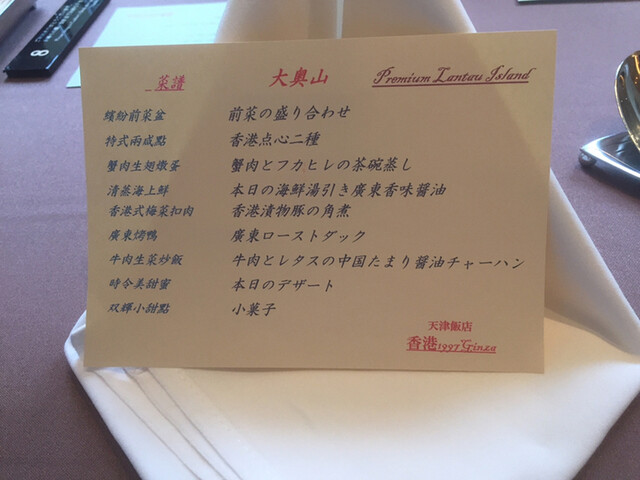 菜譜 大奥山 Premium Lantau Island
繽紛前菜盆 前菜の盛り合わせ
特式兩咸點 香港点心二種
蟹肉生翅燉蛋 蟹肉とフカヒレの茶碗蒸し
清蒸海上鮮 本日の海鮮湯引き廣東香味醤油
香港式梅菜扣肉 香港漬物豚の角煮
廣東烤鴨 廣東ローストダック
牛肉生菜炒飯 牛肉とレタスの中国たまり醤油チャーハン
時令美甜蜜 本日のデザート
双輝小甜點 小菓子
天津飯店
香港1997Ginza
8